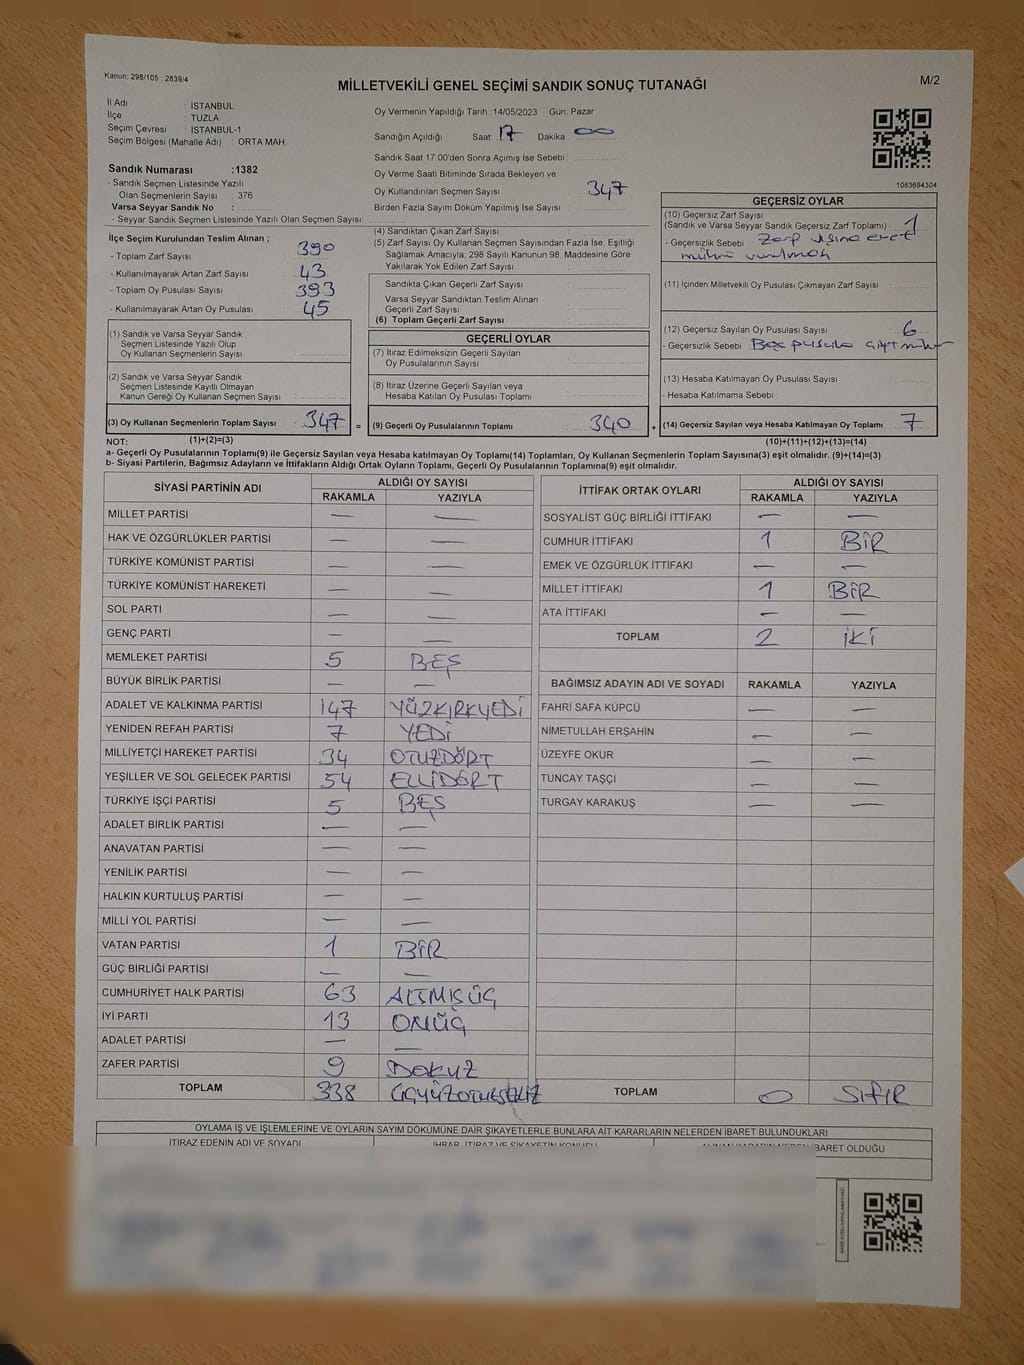 Kanun: 298/105 , 2839/4
M/2
MİLLETVEKİLİ GENEL SEÇİMİ SANDIK SONUÇ TUTANAĞI
İl Adı : İSTANBUL
İlçe : TUZLA
Seçim Çevresi : İSTANBUL-1
Seçim Bölgesi (Mahalle Adı) : ORTA MAH.
Sandık Numarası :1382
- Sandık Seçmen Listesinde Yazılı
Olan Seçmenlerin Sayısı : 376
Varsa Seyyar Sandık No :
- Seyyar Sandık Seçmen Listesinde Yazılı Olan Seçmen Sayısı:
Oy Vermenin Yapıldığı Tarih :14/05/2023 Gün: Pazar
Sandığın Açıldığı Saat: 17 Dakika : 00
Sandık Saat 17:00'den Sonra Açımış İse Sebebi :
Oy Verme Saati Bitiminde Sırada Bekleyen ve
Oy Kullandırılan Seçmen Sayısı : 347
Birden Fazla Sayım Döküm Yapılmış İse Sayısı :
1083694304
İlçe Seçim Kurulundan Teslim Alınan ;
- Toplam Zarf Sayısı : 390
- Kullanılmayarak Artan Zarf Sayısı : 43
- Toplam Oy Pusulası Sayısı : 393
- Kullanılmayarak Artan Oy Pusulası : 45
(1) Sandık ve Varsa Seyyar Sandık
Seçmen Listesinde Yazılı Olup
Oy Kullanan Seçmenlerin Sayısı :
(2) Sandık ve Varsa Seyyar Sandık
Seçmen Listesinde Kayıtlı Olmayan
Kanun Gereği Oy Kullanan Seçmen Sayısı :
(3) Oy Kullanan Seçmenlerin Toplam Sayısı : 347 =
(4) Sandıktan Çıkan Zarf Sayısı :
(5) Zarf Sayısı Oy Kullanan Seçmen Sayısından Fazla İse, Eşitliği
Sağlamak Amacıyla; 298 Sayılı Kanunun 98. Maddesine Göre
Yakılarak Yok Edilen Zarf Sayısı :
Sandıkta Çıkan Geçerli Zarf Sayısı :
Varsa Seyyar Sandıktan Teslim Alınan
Geçerli Zarf Sayısı :
(6) Toplam Geçerli Zarf Sayısı :
GEÇERLİ OYLAR
(7) İtiraz Edilmeksizin Geçerli Sayılan
Oy Pusulalarının Sayısı :
(8) İtiraz Üzerine Geçerli Sayılan veya
Hesaba Katılan Oy Pusulası Toplamı :
(9) Geçerli Oy Pusulalarının Toplamı : 340 +
GEÇERSİZ OYLAR
(10) Geçersiz Zarf Sayısı
(Sandık ve Varsa Seyyar Sandık Geçersiz Zarf Toplamı) : 1
- Geçersizlik Sebebi : Zarf üstüne evet
mührü vurulmah
(11) İçinden Milletvekili Oy Pusulası Çıkmayan Zarf Sayısı :
(12) Geçersiz Sayılan Oy Pusulası Sayısı : 6
- Geçersizlik Sebebi : Boş pusula çift mühür
(13) Hesaba Katılmayan Oy Pusulası Sayısı :
- Hesaba Katılmama Sebebi :
(14) Geçersiz Sayılan veya Hesaba Katılmayan Oy Toplamı : 7
NOT: (1)+(2)=(3) (10)+(11)+(12)+(13)=(14)
a- Geçerli Oy Pusulalarının Toplamı(9) ile Geçersiz Sayılan veya Hesaba katılmayan Oy Toplamı(14) Toplamları, Oy Kullanan Seçmenlerin Toplam Sayısına(3) eşit olmalıdır. (9)+(14)=(3)
b- Siyasi Partilerin, Bağımsız Adayların ve İttifakların Aldığı Ortak Oyların Toplamı, Geçerli Oy Pusulalarının Toplamına(9) eşit olmalıdır.
SİYASİ PARTİNİN ADI ALDIĞI OY SAYISI
RAKAMLA YAZIYLA
MİLLET PARTİSİ — —
HAK VE ÖZGÜRLÜKLER PARTİSİ — —
TÜRKİYE KOMÜNİST PARTİSİ — —
TÜRKİYE KOMÜNİST HAREKETİ — —
SOL PARTİ — —
GENÇ PARTİ — —
MEMLEKET PARTİSİ 5 BEŞ
BÜYÜK BİRLİK PARTİSİ — —
ADALET VE KALKINMA PARTİSİ 147 YÜZKIRKYEDİ
YENİDEN REFAH PARTİSİ 7 YEDİ
MİLLİYETÇİ HAREKET PARTİSİ 34 OTUZDÖRT
YEŞİLLER VE SOL GELECEK PARTİSİ 54 ELLİDÖRT
TÜRKİYE İŞÇİ PARTİSİ 5 BEŞ
ADALET BİRLİK PARTİSİ — —
ANAVATAN PARTİSİ — —
YENİLİK PARTİSİ — —
HALKIN KURTULUŞ PARTİSİ — —
MİLLİ YOL PARTİSİ — —
VATAN PARTİSİ 1 BİR
GÜÇ BİRLİĞİ PARTİSİ — —
CUMHURİYET HALK PARTİSİ 63 ALTMIŞÜÇ
İYİ PARTİ 13 ONÜÇ
ADALET PARTİSİ — —
ZAFER PARTİSİ 9 DOKUZ
TOPLAM 338 ÜÇYÜZOTUZSEKİZ
İTTİFAK ORTAK OYLARI ALDIĞI OY SAYISI
RAKAMLA YAZIYLA
SOSYALİST GÜÇ BİRLİĞİ İTTİFAKI — —
CUMHUR İTTİFAKI 1 BİR
EMEK VE ÖZGÜRLÜK İTTİFAKI — —
MİLLET İTTİFAKI 1 BİR
ATA İTTİFAKI — —
TOPLAM 2 İKİ
BAĞIMSIZ ADAYIN ADI VE SOYADI RAKAMLA YAZIYLA
FAHRİ SAFA KÜPCÜ — —
NİMETULLAH ERŞAHİN — —
ÜZEYFE OKUR — —
TUNCAY TAŞÇI — —
TURGAY KARAKUŞ — —
TOPLAM 0 SIFIR
OYLAMA İŞ VE İŞLEMLERİNE VE OYLARIN SAYIM DÖKÜMÜNE DAİR ŞİKAYETLERLE BUNLARA AİT KARARLARIN NELERDEN İBARET BULUNDUKLARI
İTİRAZ EDENİN ADI VE SOYADI İHBAR, İTİRAZ VE ŞİKAYETİN KONUSU ALINAN KARARIN NEDEN İBARET OLDUĞU